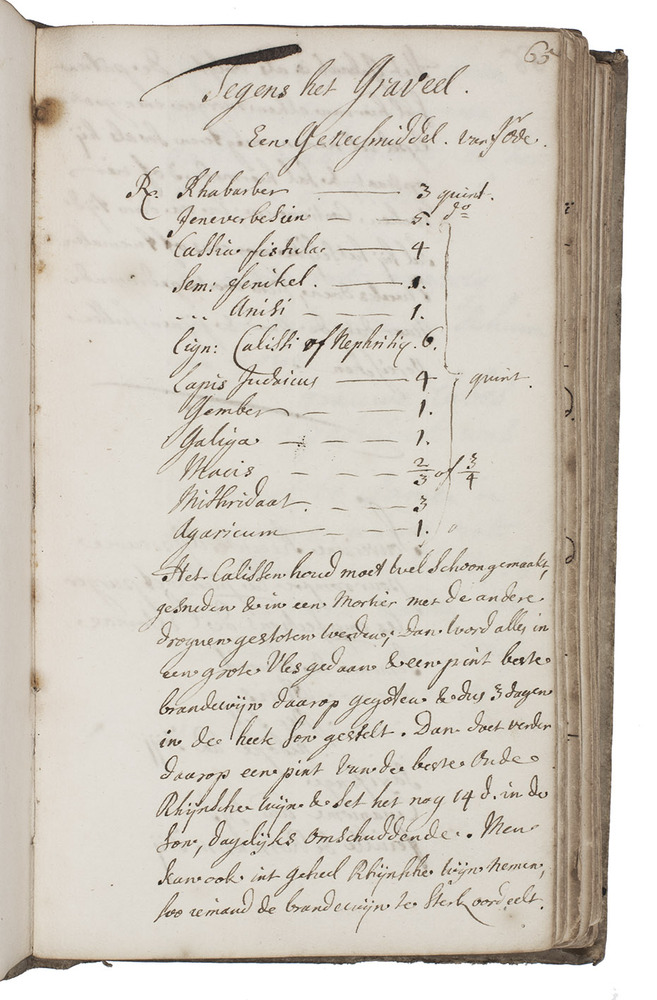 65
Tegens het Graveel.
Een Geneesmiddel. van
Rc. Rhabarber — 3 quint.
Jeneverbesien — 5. do
Cassia fistula — 4
Sem: fenikel. — 1.
... Anisi — 1.
Lign: Calissi of Nephritiq. 6.
Lapis Judaicus — 4 quint.
Gember — 1.
Galiga — 1.
Macis — 2/3 of 3/4
Mithridaat. — 3
Agaricum — 1.
Het Calissen houd moet wel schoon gemaakt,
gesneden & in een Mortier met de andere
droguen gestoten werden, dan word alles in
een grote Vles gedaan & een pint beste
brandewijn daarop gegoten & dus 3 dagen
in de heete son gestelt. Dan doet verder
daarop een pint van de beste oude
Rhijnsche wijn & set het nog 14 d. in de
son, dagelijks omschuddende. Men
kan ook int geheel Rhijnsche wijn nemen,
soo iemand de brandewijn te sterk oordeelt.